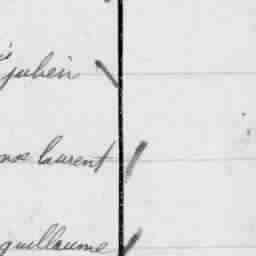 julien
laurent
guillaume